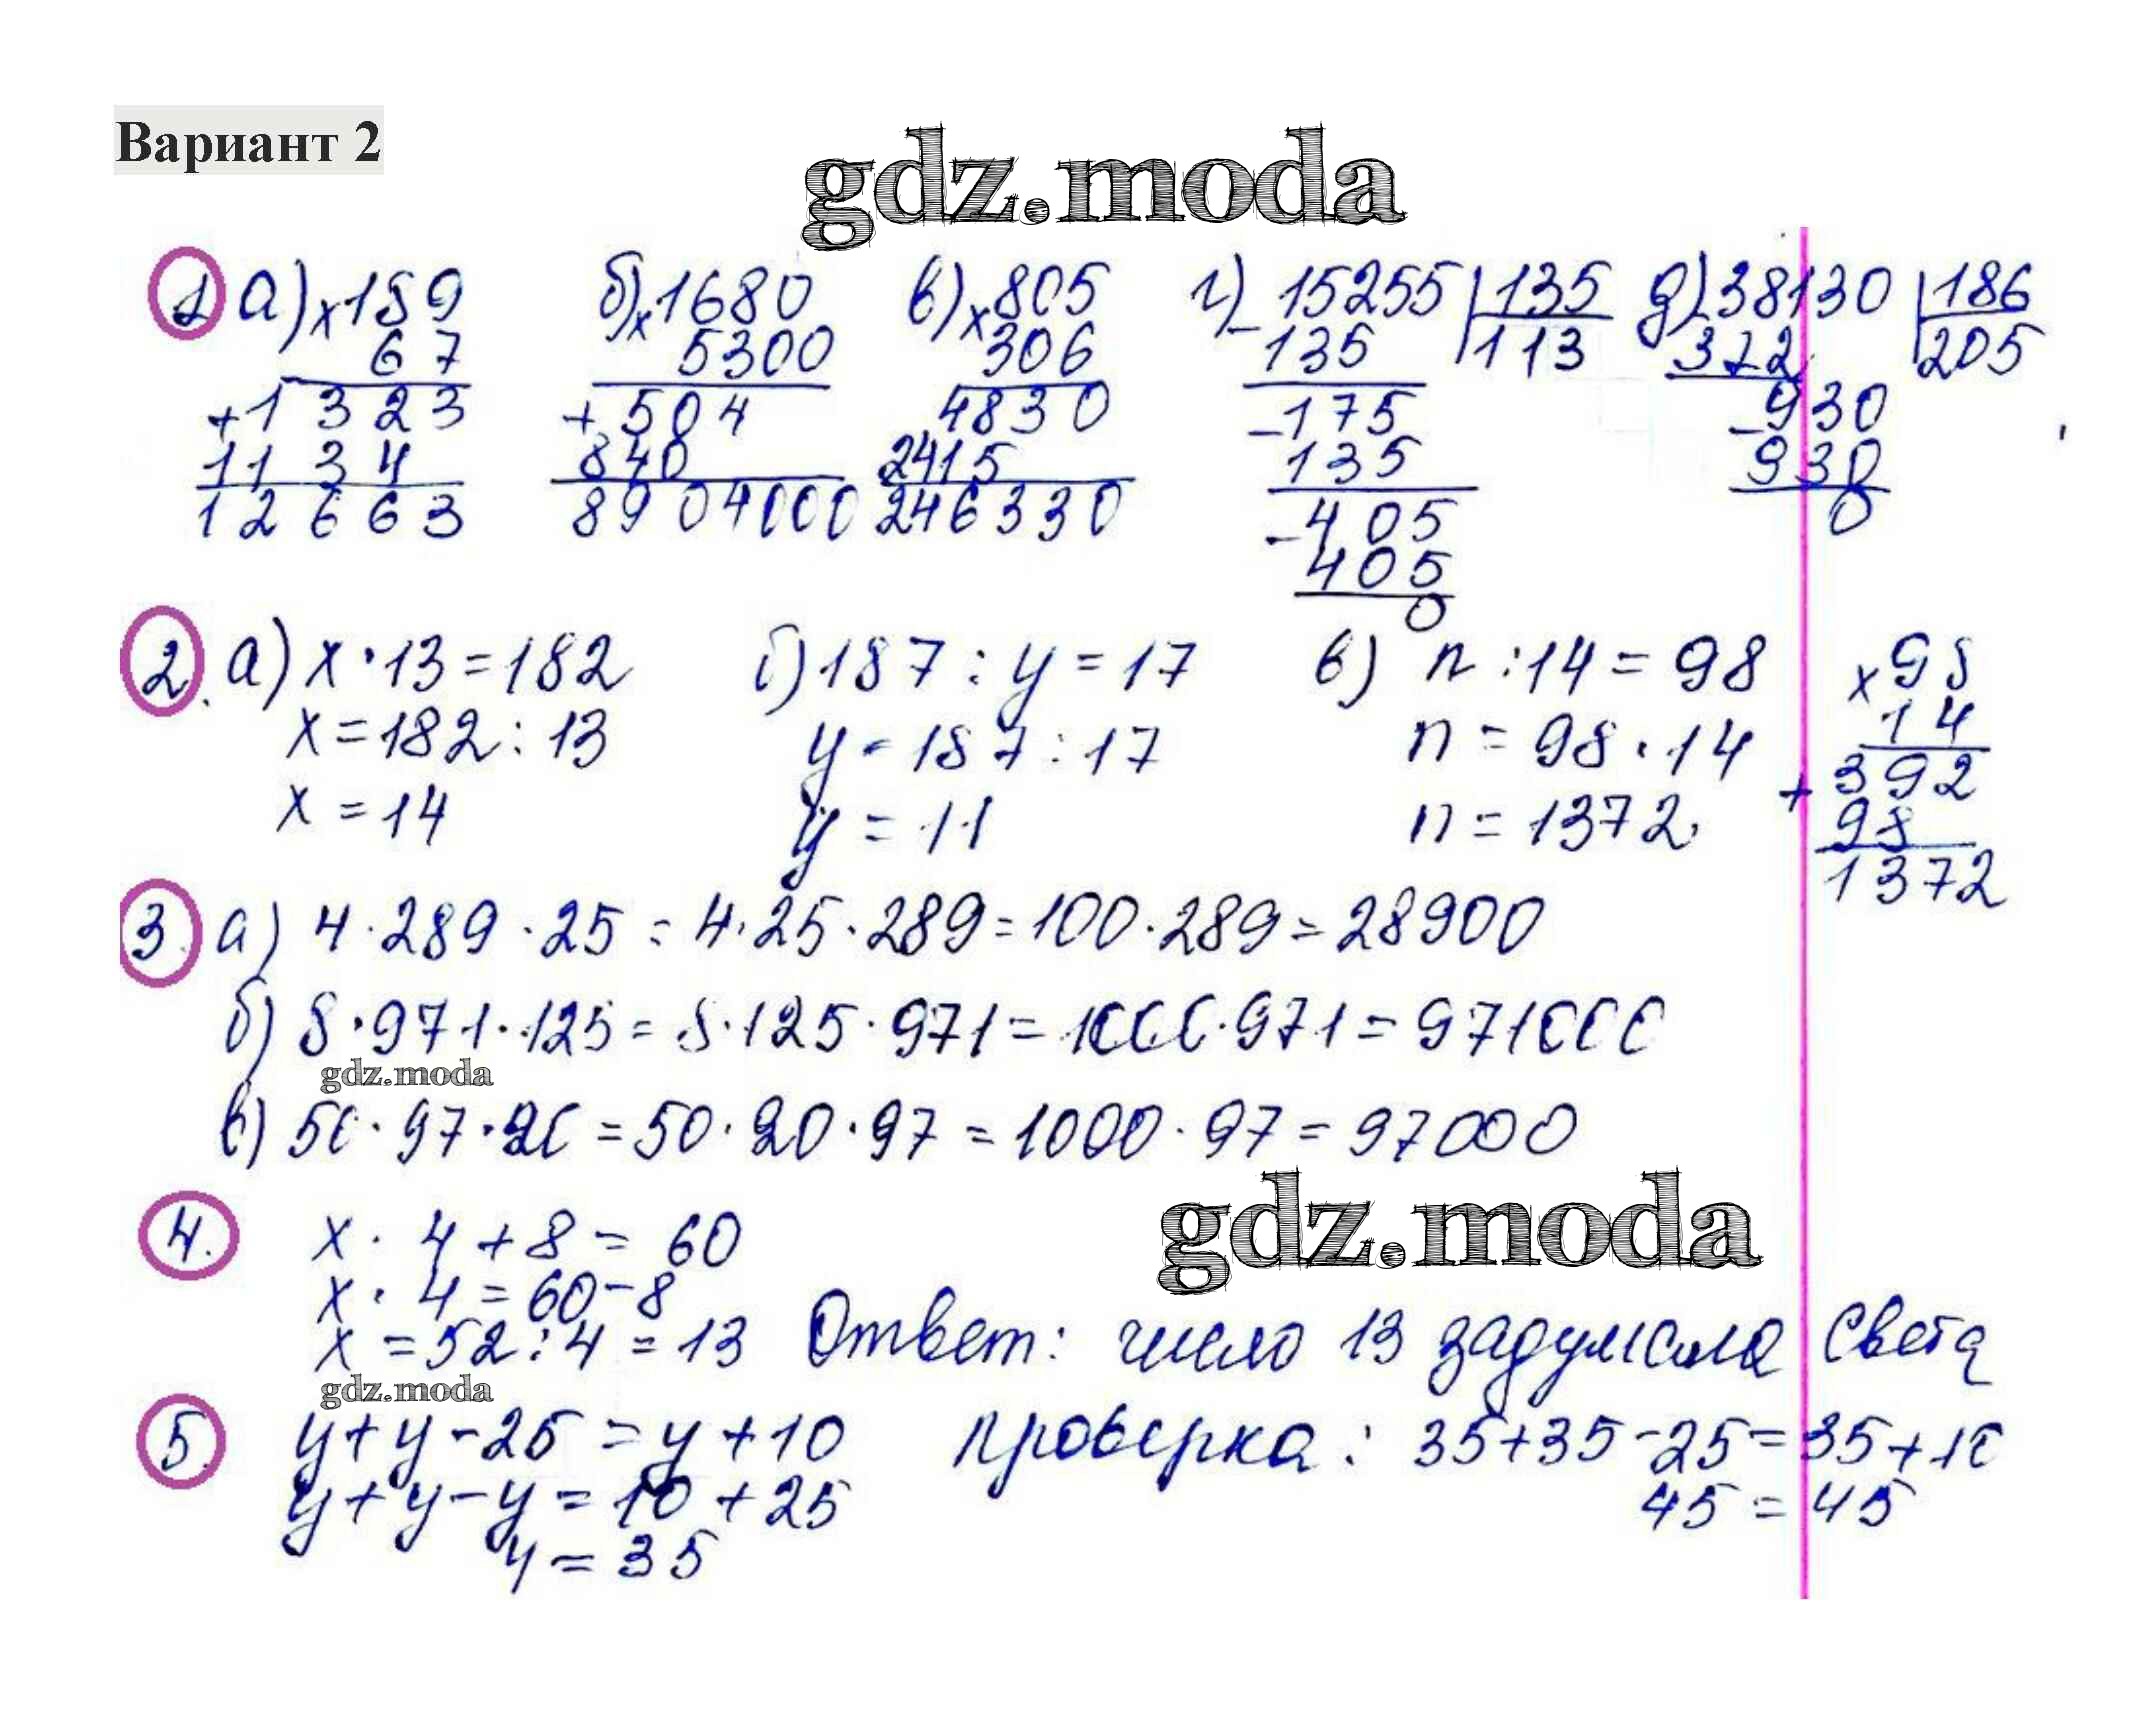 Вариант 2
gdz.moda
1 а) × 189 б) × 1680 в) × 805 г) 15255 | 135 д) 38130 | 186
67 5300 306 − 135 | 113 372 | 205
+ 1323 + 504 4830 − 175 − 930
1134 840 2415 135 930
12663 8904000 246330 − 405 0
405
0
2. а) x · 13 = 182 б) 187 : y = 17 в) n : 14 = 98 × 98
x = 182 : 13 y = 187 : 17 n = 98 · 14 14
x = 14 y = 11 n = 1372 + 392
98
1372
3. а) 4 · 289 · 25 = 4 · 25 · 289 = 100 · 289 = 28900
б) 8 · 971 · 125 = 8 · 125 · 971 = 1000 · 971 = 971000
gdz.moda
в) 50 · 97 · 20 = 50 · 20 · 97 = 1000 · 97 = 97000
gdz.moda
4. x · 4 + 8 = 60
x · 4 = 60 − 8
x = 52 : 4 = 13 Ответ: число 13 задумала Света
gdz.moda
5. y + y − 25 = y + 10 проверка: 35 + 35 − 25 = 35 + 10
y + y − y = 10 + 25 45 = 45
y = 35